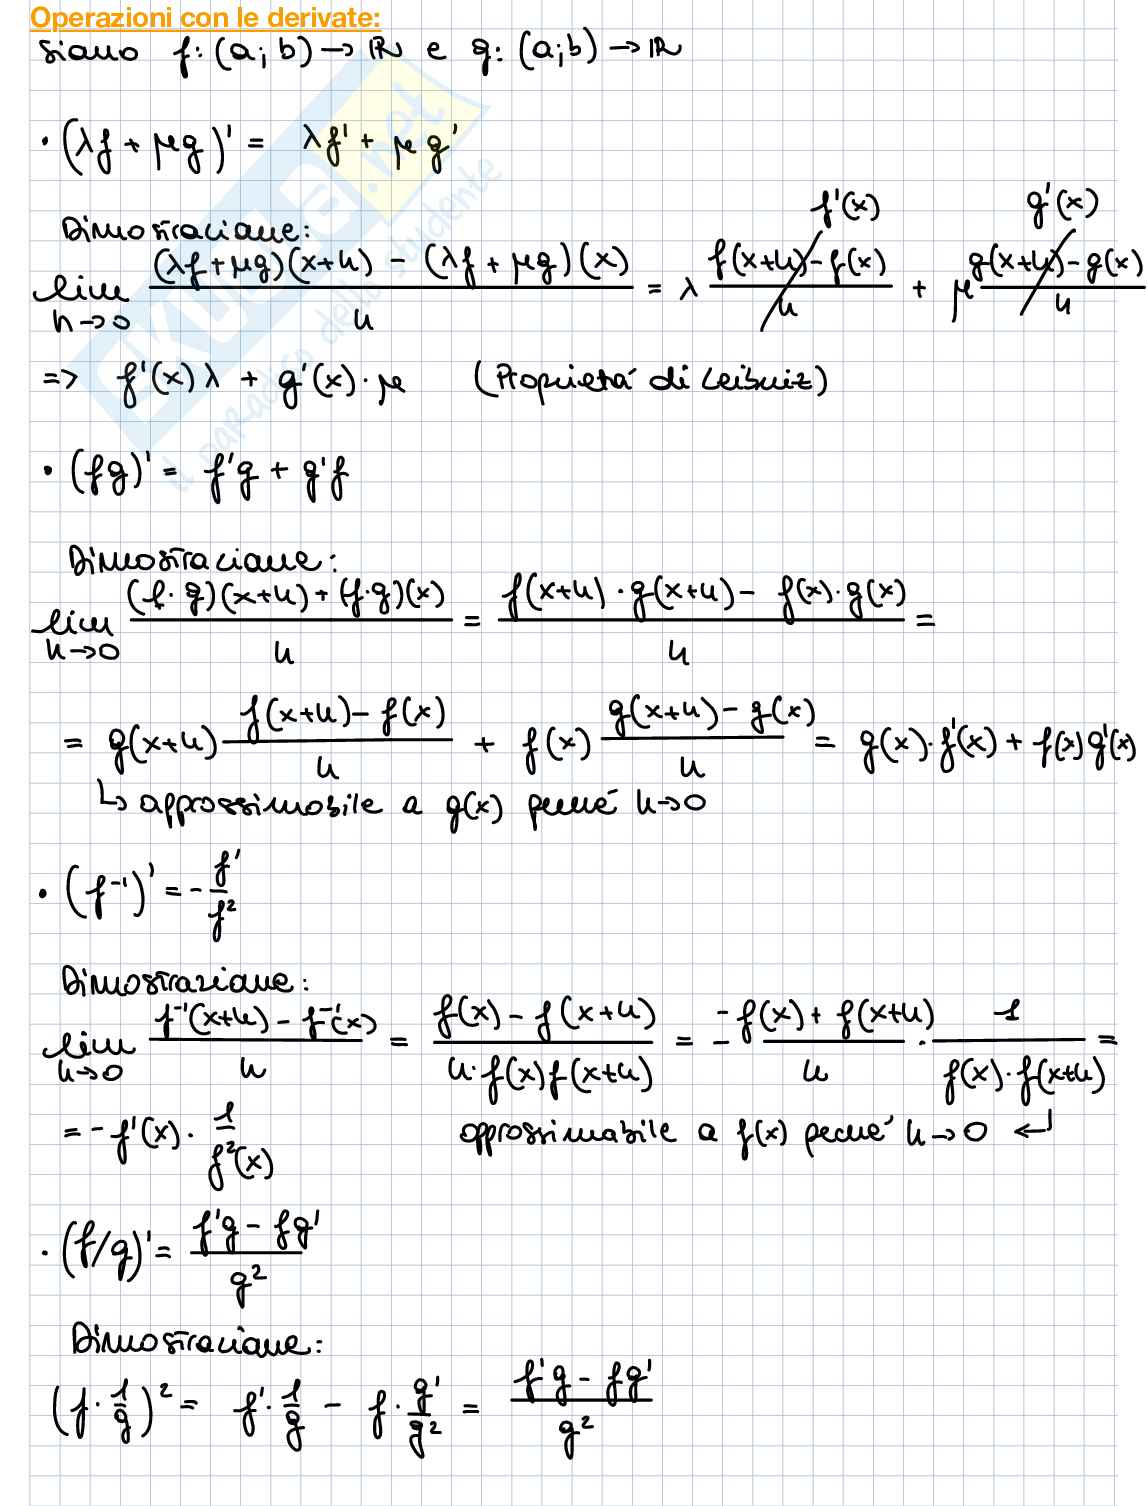 Operazioni con le derivate:
siano f: (a; b) → ℝ e g: (a; b) → ℝ
• (λf + μg)' = λf' + μg'
Dimostrazione:
lim h→0 ((λf + μg)(x+h) - (λf + μg)(x))/h = λ (f(x+h) - f(x))/h + μ (g(x+h) - g(x))/h
f'(x) g'(x)
=> f'(x)λ + g'(x)·μ (Proprietá di Leibniz)
• (fg)' = f'g + g'f
Dimostrazione:
lim h→0 ((f·g)(x+h) + (f·g)(x))/h = (f(x+h)·g(x+h) - f(x)·g(x))/h =
= g(x+h) (f(x+h) - f(x))/h + f(x) (g(x+h) - g(x))/h = g(x)·f'(x) + f(x)g'(x)
↳ approssimabile a g(x) perché h→0
• (f⁻¹)' = - f'/f²
Dimostrazione:
lim h→0 (f⁻¹(x+h) - f⁻¹(x))/h = (f(x) - f(x+h))/(h·f(x)f(x+h)) = - (-f(x) + f(x+h))/h · 1/(f(x)·f(x+h)) =
= - f'(x) · 1/f²(x) approssimabile a f(x) perché h→0 ↵
• (f/g)' = (f'g - fg')/g²
Dimostrazione:
(f · 1/g)² = f' · 1/g - f · g'/g² = (f'g - fg')/g²
SKUOLA.net
il paradiso dello studente